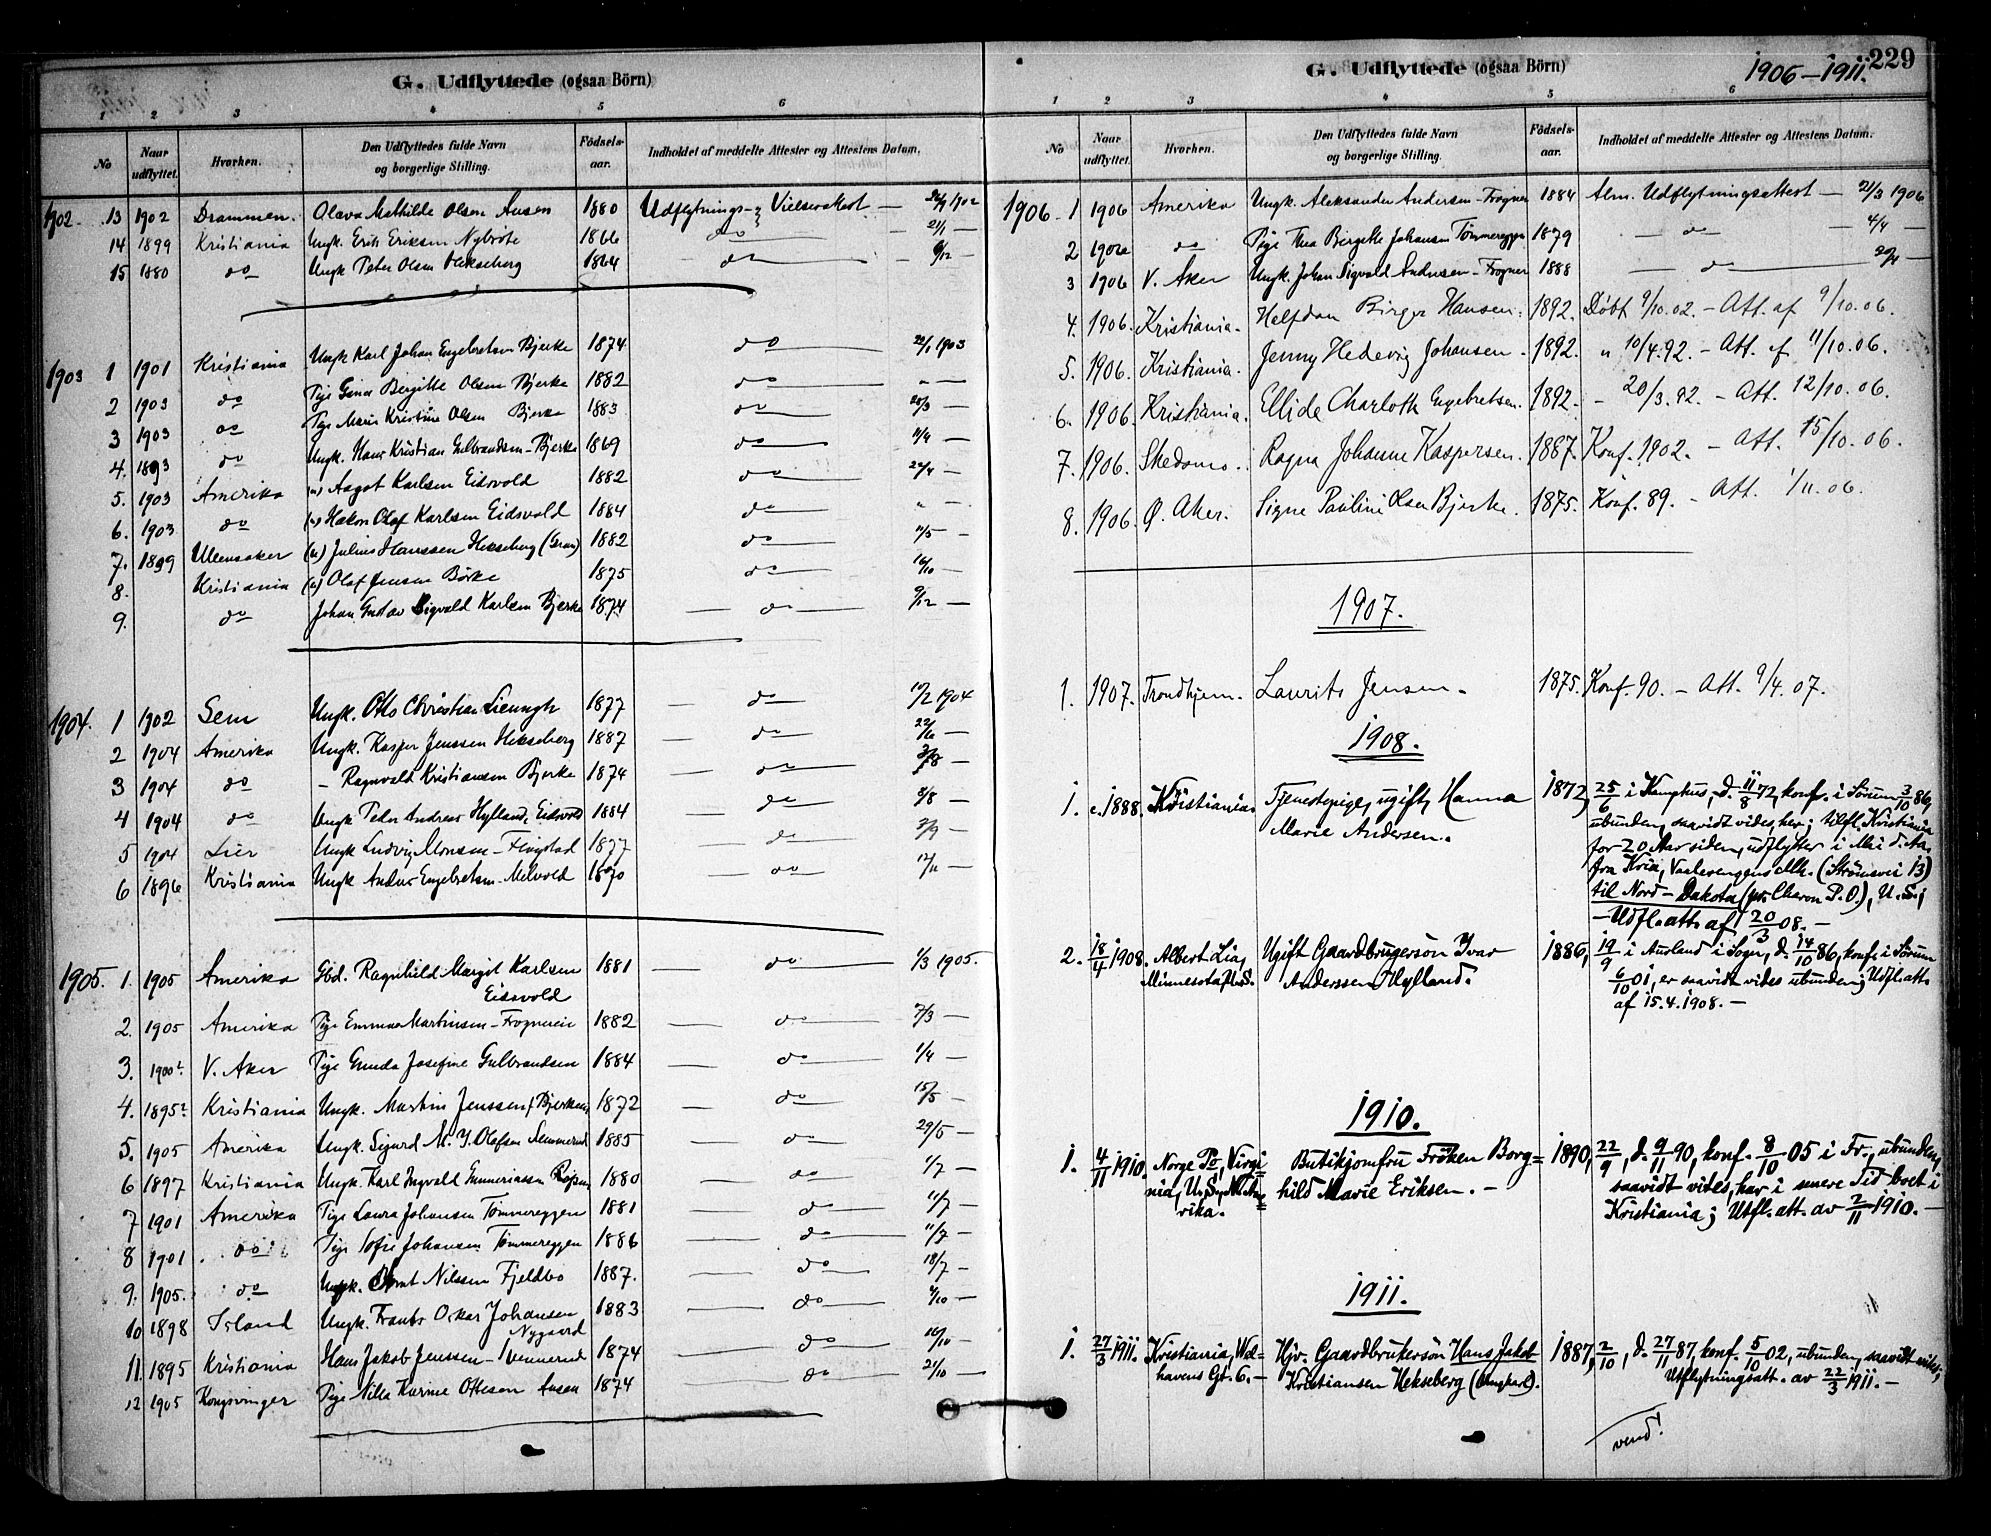 G. Udflyttede (ogsaa Börn)
1 2 3 4 5 6
No Naar udflyttet. Hvorhen. Den Udflyttedes fulde Navn og borgerlige Stilling. Födsels-aar. Indholdet af meddelte Attester og Attestens Datum.
1902. 13 1902 Drammen. Olava Mathilde Olsen Ausen 1880 Udflytnings- Vielsesattest — 1902
14 1899 Kristiania Ungk. Erik Eriksen Nybråte 1866 do — 21/1 —
15 1880 do Ungk Peter Olsen Hekseberg 1864 do — 6/12 —
1903 1 1901 Kristiania Ungk Karl Johan Engebretsen Bjerke 1874 do 20/1 1903
2 1903 do Pige Gina Bergitte Olsen Bjerke 1882 do " —
3 1903 do Pige Marie Kristine Olsen Bjerke 1883 do 20/3 —
4. 1893 do Ungk. Hans Kristian Gulbrandsen - Bjerke 1869 do 11/4 —
5. 1903 Amerika (u) Aagot Karlsen Eidsvold 1882 do 22/4 —
6. 1903 do (u) Hakon Olaf Karlsen Eidsvold 1884 do " -
7. 1899 Ullensaker (u) Julius Hanssen Hekseberg (Gran) 1882 do 11/5 -
8. Kristiania (u) Olaf Jensen Börke 1875 do 16/10 —
9. do Johan Gustav Sigvald Karlsen Bjerke 1874 — do 9/12 —
1904. 1 1902 Sem Ungk. Otto Christian Lieungh 1877 — do 10/2 1904
2 1904 Amerika Ungk. Kasper Jenssen Hekseberg 1887 — do 22/6 —
3 1904 do - Ragnvald Kristiansen Bjerke 1874 — do 3/8 —
4 1904 do Ungk Peter Andreas Hylland, Eidsvold 1884 — do 8/8 —
5 1904 Lier Ungk Ludvig Monsen - Flogstad 1877 — do 2/9 —
6 1896 Kristiania Ungk Anders Engebretsen - Melvold 1870 — do 12/11 —
1905. 1. 1905 Amerika Gbd. Ragnhild Margit Karlsen 1881 — do 1/3 1905.
Eidsvold
2. 1905 Amerika Pige Emma Martinsen - Frogneie 1882 — do 7/3 —
3. 1900 V. Aker Pige Gunda Josefine Gulbrandsen 1884 — do 1/4 —
4. 1895? Kristiania Ungk. Martin Jenssen 1872 — do 15/5 —
5. 1905 Amerika Ungk. Sigurd M. J. Olafsen 1885 — do 29/5 —
6 1897 Kristiania Ungk. Karl Ingvald 1880 — do 1/7 —
7 1901 Amerika Pige Laura Johansen Tömmereggen 1881 — do 11/7 —
8 1901 do Pige Sofie Johansen Tömmereggen 1886 — do 11/7 —
9. 1905. do Ungk. Bernt Nilssen Fjeldbo 1887. — do 18/7 —
10 1898 Island Ungk. Frants Oskar Johansen 1883 — do 4/10 —
Nygaard
11 1895 Kristiania Hans Jakob Jenssen - 1874 — do 16/10 —
12 1905 Kongsvinger Pige Nilla Karine Ottesen Ausen 1874 do 21/10 —
G. Udflyttede (ogsaa Börn)
1906-1911. 229
1 2 3 4 5 6
No Naar udflyttet. Hvorhen. Den Udflyttedes fulde Navn og borgerlige Stilling. Födsels-aar. Indholdet af meddelte Attester og Attestens Datum.
1906 - 1 1906 Amerika Ungk. Aleksander Andersen - Frogner 1884 Alm. Udflytningsattest — 21/3 1906
2 1902 do Pige Thea Bergitte Johansen Tömmereggen 1879 — do — 4/4 —
3 1906 V. Aker Ungk. Johan Sigvald Andersen - Frogner 1888 — do — 20/4 —
4. 1906. Kristiania. Helfdan Birger Hansen. 1892. Döbt 9/10.02. - Att. af 9/10.06.
5. 1906. Kristiania. Jenny Hedevig Johansen. 1892. " 10/4.92. - Att. af 11/10.06.
6. 1906. Kristiania. Ellide Charloth Engebretsen. 1892. - 20/3.92. - Att. 12/10.06.
7. 1906. Skedsmo. Ragna Johanne Kaspersen. 1887. Konf. 1902. - Att. 15/10.06.
8. 1906. Ø. Aker. Signe Pauline Olsen Bjerke. 1875. Konf. 89. - Att. 1/11.06.
1907.
1. 1907. Trondhjem. Laurits Jensen. 1875. Konf. 90. - Att. 9/4.07.
1908.
1. c. 1888. Kristiania. Tjenestepige, ugift, Hanna 1872, 25/6 i Kamphus, d. 11/8 72, konf. i Sörum 3/10 86,
Marie Andersen. ubunden, saavidt vides, her; tilfl. Kristiania
for 20 Aar siden, udflytter i Mai d. Aa.
fra Kria, Vaalerengens Mh. (Strömsvei 13)
til Nord-Dakota (pr. Charon P.O.), U.S.;
- Udfl.att. af 20/3 08. -
2. 18/4 1908. Albert Lia, Ugift Gaardbrugersön Ivar 1886, 19/9 i Aurland i Sogn, d. 14/10 86, konf. i Sörum
Minnesota, U.S. Anderssen Hylland. 6/10 01, er saavidt vides ubunden; Udfl.att.
af 15.4.1908. -
1910.
1. 4/11 1910. Norge Po, Virgi= Butikjomfru Fröken Borg= 1890, 22/9, d. 9/11 90, konf. 8/10 05 i Fr., ubunden,
nia, U.S., N. Ame= hild Marie Eriksen. - saavidt vites, har i senere Tid boet i
rika. Kristiania; Utfl. att. av 2/11 1910. -
1911.
1. 27/3 1911. Kristiania, Wel= Hjv. Gaardbrukersön Hans Jakob 1887, 2/10, d. 27/11 87, konf. 5/10 02, ubunden, saavidt vites,
havens Gt. 6. - Kristiansen Hekseberg (Ungkarl). Utflytningsatt. av 22/3 1911. -
vend!